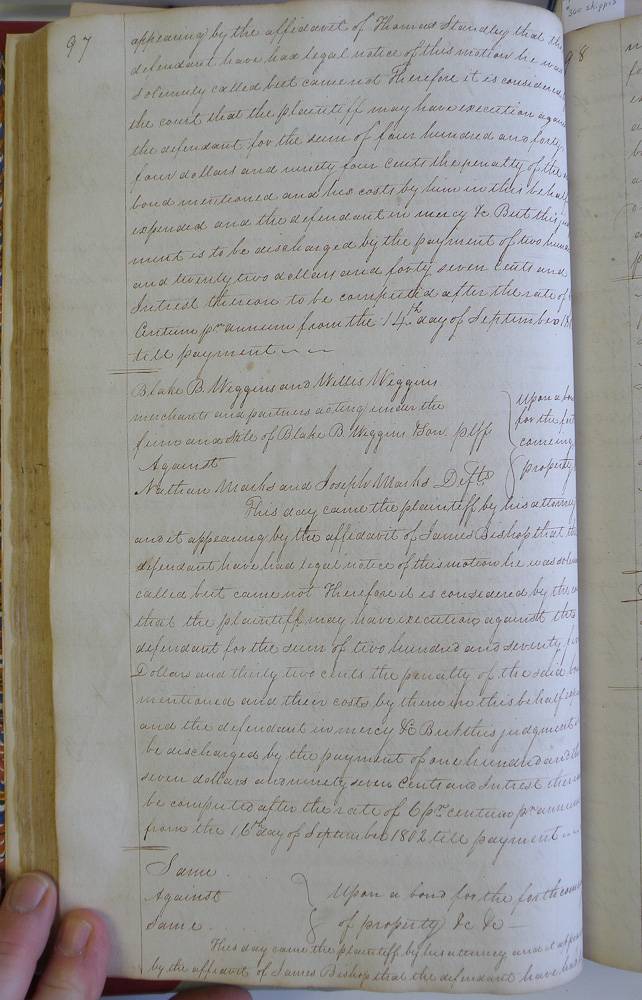 97
appearing by the affidavit of Thomas Standley that the
defendant have had legal notice of this motion he was
solemnly called but came not Therefore it is considered
the court that the plaintiff may have execution again
the defendant for the sum of four hundred and forty
four dollars and ninety four cents the penalty of the
bond mentioned and his costs by him in this behalf
expended and the defendant in mercy &c But this
ment is to be discharged by the payment of two hun
and twenty two dollars and forty seven Cents and
Intrest thereon to be computed after the rate of
Centum pr annum from the 14th day of September 18
till payment
Blake B. Wiggins and Willis Wiggins
merchants and partners acting under the
firm and stile of Blake B. Wiggins & Son plff
Against
Nathan Marks and Joseph Marks Defts
Upon a bon
for the fort
coming
property
This day came the plaintiff by his attorney
and it appearing by the affidavit of James Bishop that the
defendant have had legal notice of this motion he was solem
called but came not Therefore it is considered by the co
that the plaintiff may have execution against the
defendant for the sum of two hundred and seventy
Dollars and thirty two cents the penalty of the said bon
mentioned and their costs by them in this behalf exp
and the defendant in mercy &c But this judgment
be discharged by the payment of one hundred and th
seven dollars and ninety seven Cents and Intrest thereon
be computed after the rate of 6 pr centum pr annum
from the 16th day of September 1812 till payment
Same
Against
Same
Upon a bond for the forthcom
of property &c &c
This day came the plaintiff by his attorney and it appear
by the affidavit of James Bishop that the defendant have had
98